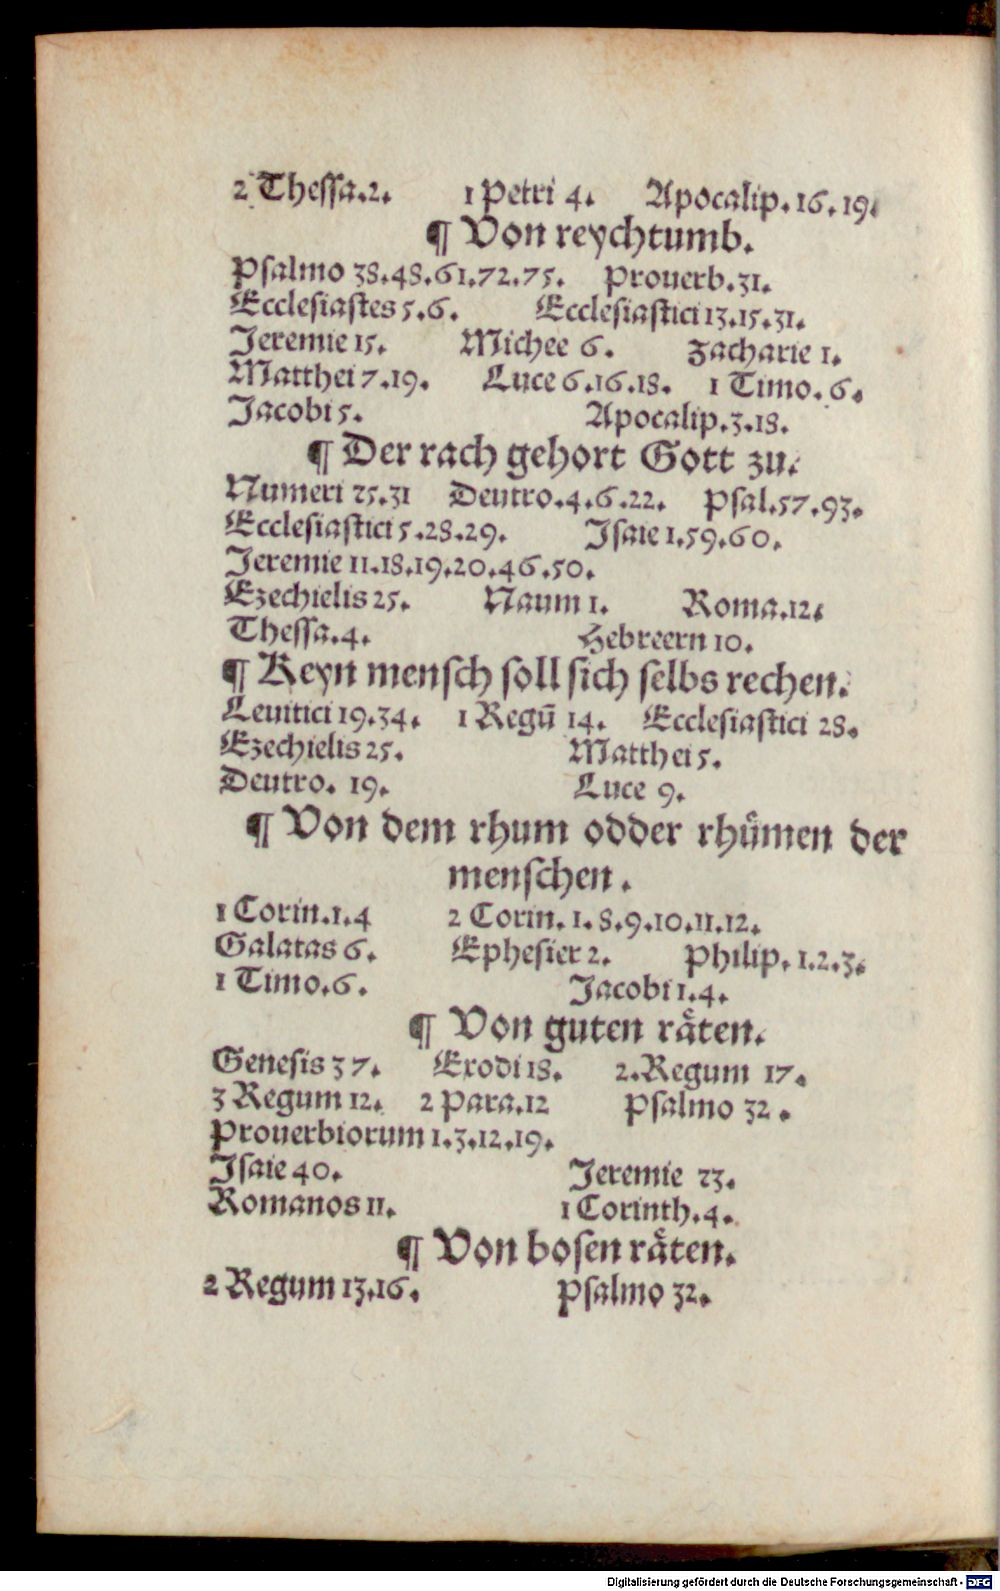 2 Thessa.2. 1 Petri 4. Apocalip. 16. 19.
¶ Von reychtumb.
Psalmo 38.48.61.72.75. Prouerb.31.
Ecclesiastes 5.6. Ecclesiastici 13.15.31.
Jeremie 15. Michee 6. Zacharie 1.
Matthei 7.19. Luce 6.16.18. 1 Timo. 6.
Jacobi 5. Apocalip.3.18.
¶ Der rach gehort Gott zu.
Numeri 25.31 Deutro.4.6.22. Psal.57.93.
Ecclesiastici 5.28.29. Isaie 1.59.60.
Jeremie 11.18.19.20.46.50.
Ezechielis 25. Naum 1. Roma.12.
Thessa.4. Hebreern 10.
¶ Keyn mensch soll sich selbs rechen.
Leuitici 19.34. 1 Regū 14. Ecclesiastici 28.
Ezechielis 25. Matthei 5.
Deutro. 19. Luce 9.
¶ Von dem rhum odder rhuͤmen der
menschen.
1 Corin.1.4 2 Corin. 1. 8.9.10.11.12.
Galatas 6. Ephesier 2. Philip. 1.2.3.
1 Timo.6. Jacobi 1.4.
¶ Von guten raͤten.
Genesis 37. Exodi 18. 2.Regum 17.
3 Regum 12. 2 Para.12 Psalmo 32.
Prouerbiorum 1.3.12.19.
Isaie 40. Jeremie 23.
Romanos 11. 1 Corinth.4.
¶ Von bosen raͤten.
2 Regum 13.16. Psalmo 32.
Digitalisierung gefördert durch die Deutsche Forschungsgemeinschaft - DFG